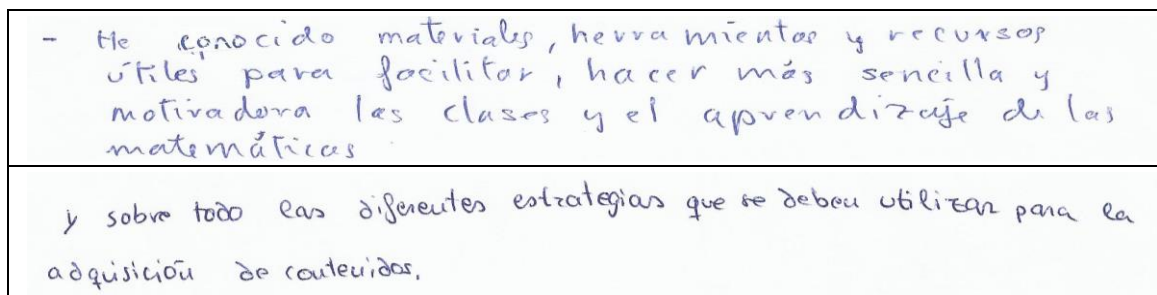 - He conocido materiales, herramientas y recursos
útiles para facilitar, hacer más sencilla y
motivadora las clases y el aprendizaje de las
matemáticas
y sobre todo las diferentes estrategias que se deben utilizar para la
adquisición de contenidos.